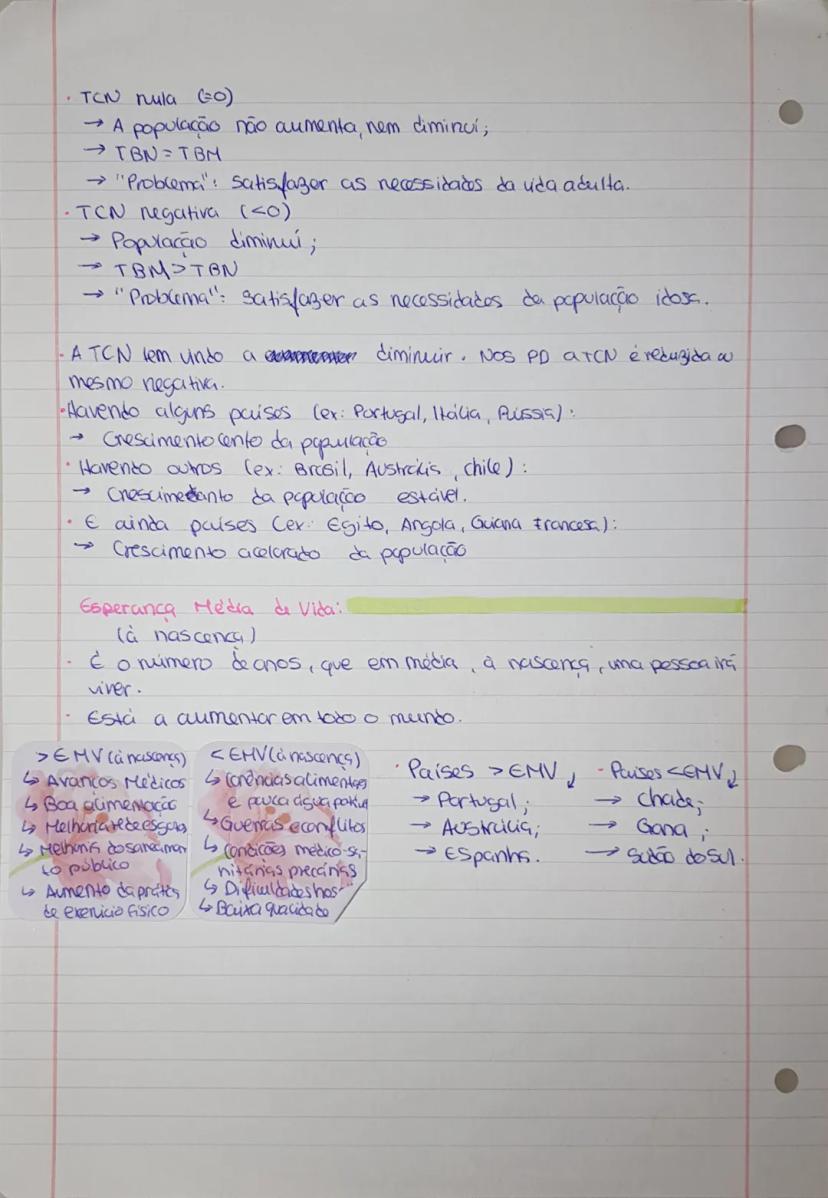 · TCN nula (=0)
→ A população não aumenta, nem diminuí;
→ TBN = TBM
→ "Problema": satisfazer as necessidades da vida adulta.
· TCN negativa (<0)
→ População diminuí;
→ TBM > TBN
→ "Problema": satisfazer as necessidades da população idosa.
· A TCN tem vindo a diminuir. Nos PD a TCN é reduzida ou
mesmo negativa.
· Havendo alguns países (ex: Portugal, Itália, Rússia):
→ Crescimento lento da população
· Havendo outros (ex: Brasil, Austrália, Chile):
→ da população estável.
· E ainda países (ex: Egito, Angola, Guiana Francesa):
→ Crescimento acelerado da população
Esperança Média de Vida:
(à nascença)
· É o número de anos, que em média, à nascença, uma pessoa irá
viver.
· Está a aumentar em todo o mundo.
> EMV (à nascença)
↳ Avanços Médicos
↳ Boa alimentação
↳ Melhoria rede esgotos
↳ Melhoria do saneamen
to público
↳ Aumento da prática
de exercício físico
< EMV (à nascença)
↳ Carências alimentares
e pouca água potável
↳ Guerras e conflitos
↳ Condições médico-sa-
nitárias precárias
↳ Dificuldades
↳ Baixa qualidade
· Países > EMV ↓
→ Portugal;
→ Austrália;
→ Espanha.
· Países < EMV ↓
→ Chade;
→ Gana;
→ Sudão do Sul.